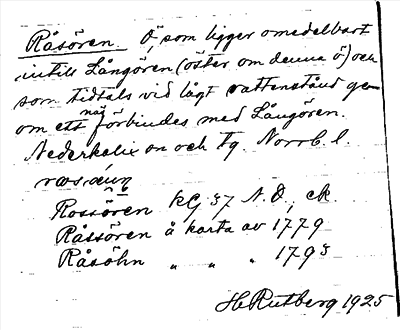 Råsören. Ö, som ligger omedelbart
intill Långören (öster om denna ö) och
som tidtals vid lågt vattenstånd ge-
om ett näs förbindes med Långören.
Nederkalix sn och tg. Norrb. l.
Rossören kG 37 N.O., ek.
Råssören å karta av 1779
Råsöhn " " " 1793
H Rutberg 1925